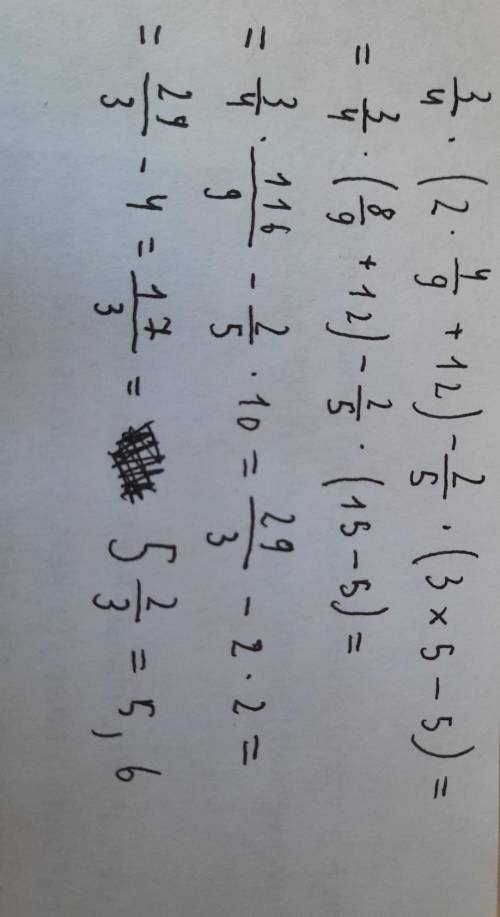 3/4 · (2 · 4/9 + 12) - 2/5 · (3 × 5 - 5) =
= 3/4 · (8/9 + 12) - 2/5 · (15 - 5) =
= 3/4 · 116/9 - 2/5 · 10 = 29/3 - 2 · 2 =
= 29/3 - 4 = 17/3 = 5 2/3 = 5,6